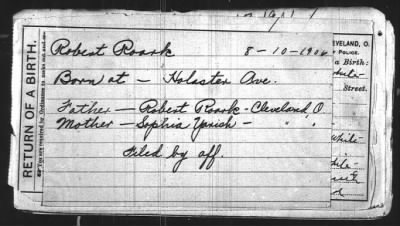 RETURN OF A BIRTH.
Robert Roark 8-10-1906
Born at - Holaster Ave.
Father - Robert Roark - Cleveland, O.
Mother - Sophia Yanish - " "
Filed by aff.
CLEVELAND, O.
POLICE.
a Birth:
Street.